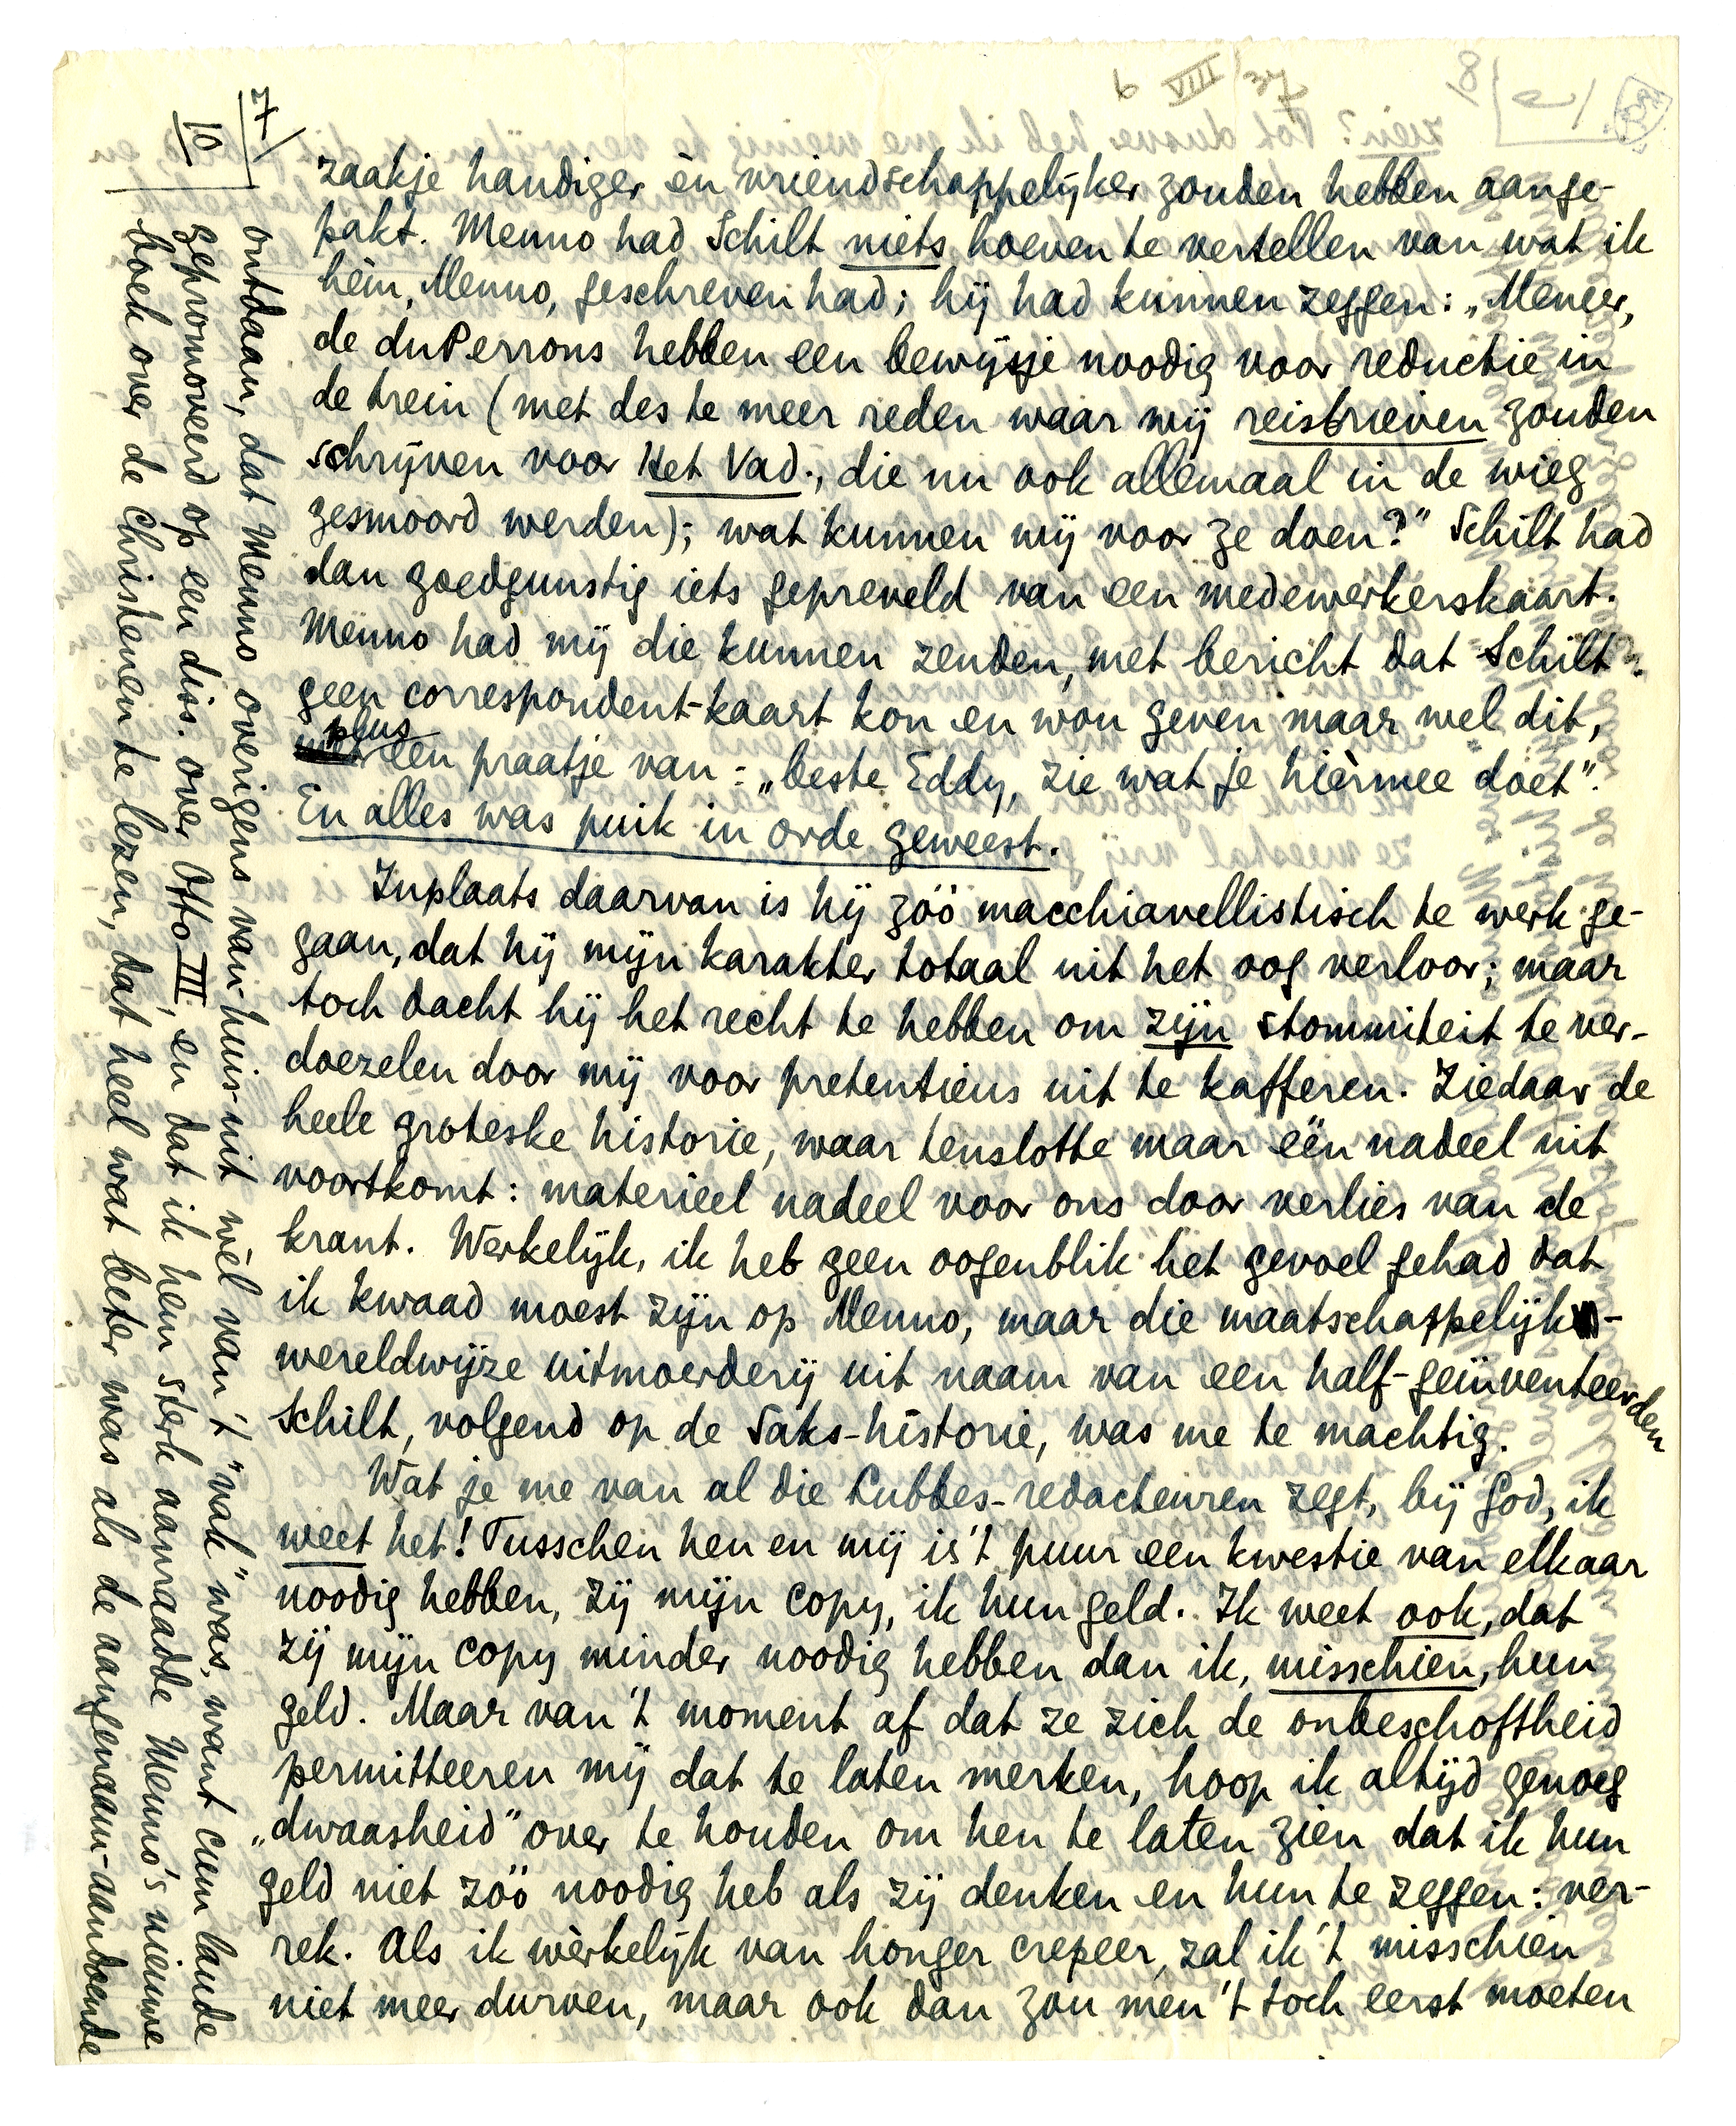 7
10
zaakje handiger èn vriendschappelijker zouden hebben aange-
pakt. Menno had Schilt niets hoeven te vertellen van wat ik
hèm, Menno, geschreven had; hij had kunnen zeggen: „Meneer,
de duPerrons hebben een bewijsje noodig voor reductie in
de trein (met des te meer reden waar wij reisbrieven zouden
schrijven voor Het Vad., die nu ook allemaal in de wieg
gesmoord werden); wat kunnen wij voor ze doen?" Schilt had
dan goedgunstig iets gepreveld van een medewerkerskaart.
Menno had mij die kunnen zenden, met bericht dat Schilt
geen correspondent-kaart kon en wou geven maar wel dit,
plus
een praatje van: „beste Eddy, zie wat je hièrmee doet".
En alles was puik in orde geweest.
Inplaats daarvan is hij zóó macchiavellistisch te werk ge-
gaan, dat hij mijn karakter totaal uit het oog verloor; maar
toch dacht hij het recht te hebben om zijn stommiteit te ver-
doezelen door mij voor pretentieus uit te kafferen. Ziedaar de
heele groteske historie, waar tenslotte maar één nadeel uit
voortkomt: materieel nadeel voor ons door verlies van de
krant. Werkelijk, ik heb geen oogenblik het gevoel gehad dat
ik kwaad moest zijn op Menno, maar die maatschappelijk-
wereldwijze uitmoerderij uit naam van een half-geïnventeerden
Schilt, volgend op de Saks-historie, was me te machtig.
Wat je me van al die Lubbes-redacteuren zegt, bij God, ik
weet het! Tusschen hen en mij is 't puur een kwestie van elkaar
noodig hebben, zij mijn copy, ik hun geld. Ik weet ook, dat
zij mijn copy minder noodig hebben dan ik, misschien, hun
geld. Maar van 't moment af dat ze zich de onbeschoftheid
permitteeren mij dat te laten merken, hoop ik altijd genoeg
„dwaasheid" over te houden om hen te laten zien dat ik hun
geld niet zóó noodig heb als zij denken en hun te zeggen: ver-
rek. Als ik wèrkelijk van honger crepeer, zal ik 't misschien
niet meer durven, maar ook dan zou men 't toch eerst moeten
ontdaan, dat Menno overigens van-huis-uit wèl van 't "vak" was, want cum laude
gepromoveerd op een diss. over Otto III, en dat ik hem sterk aanraadde Menno's nieuwe
boek over de Christenen te lezen, dat heel wat beter was als de aangenaam-aandoende